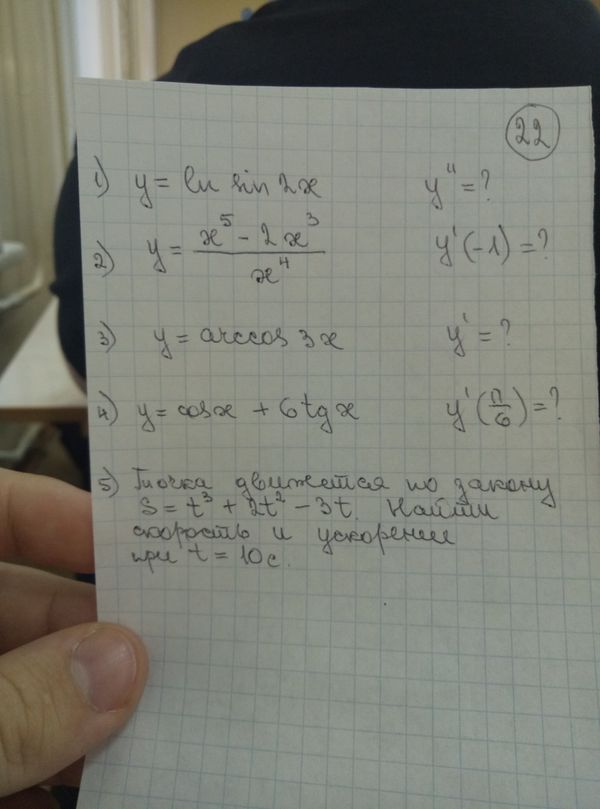 22
1) y = ln sin 2x y'' = ?
2) y = (x⁵ - 2x³)/x⁴ y'(-1) = ?
3) y = arccos 3x y' = ?
4) y = cosx + 6tgx y'(π/6) = ?
5) Точка движется по закону
S = t³ + 2t² - 3t. Найти
скорость и ускорение
при t = 10с.